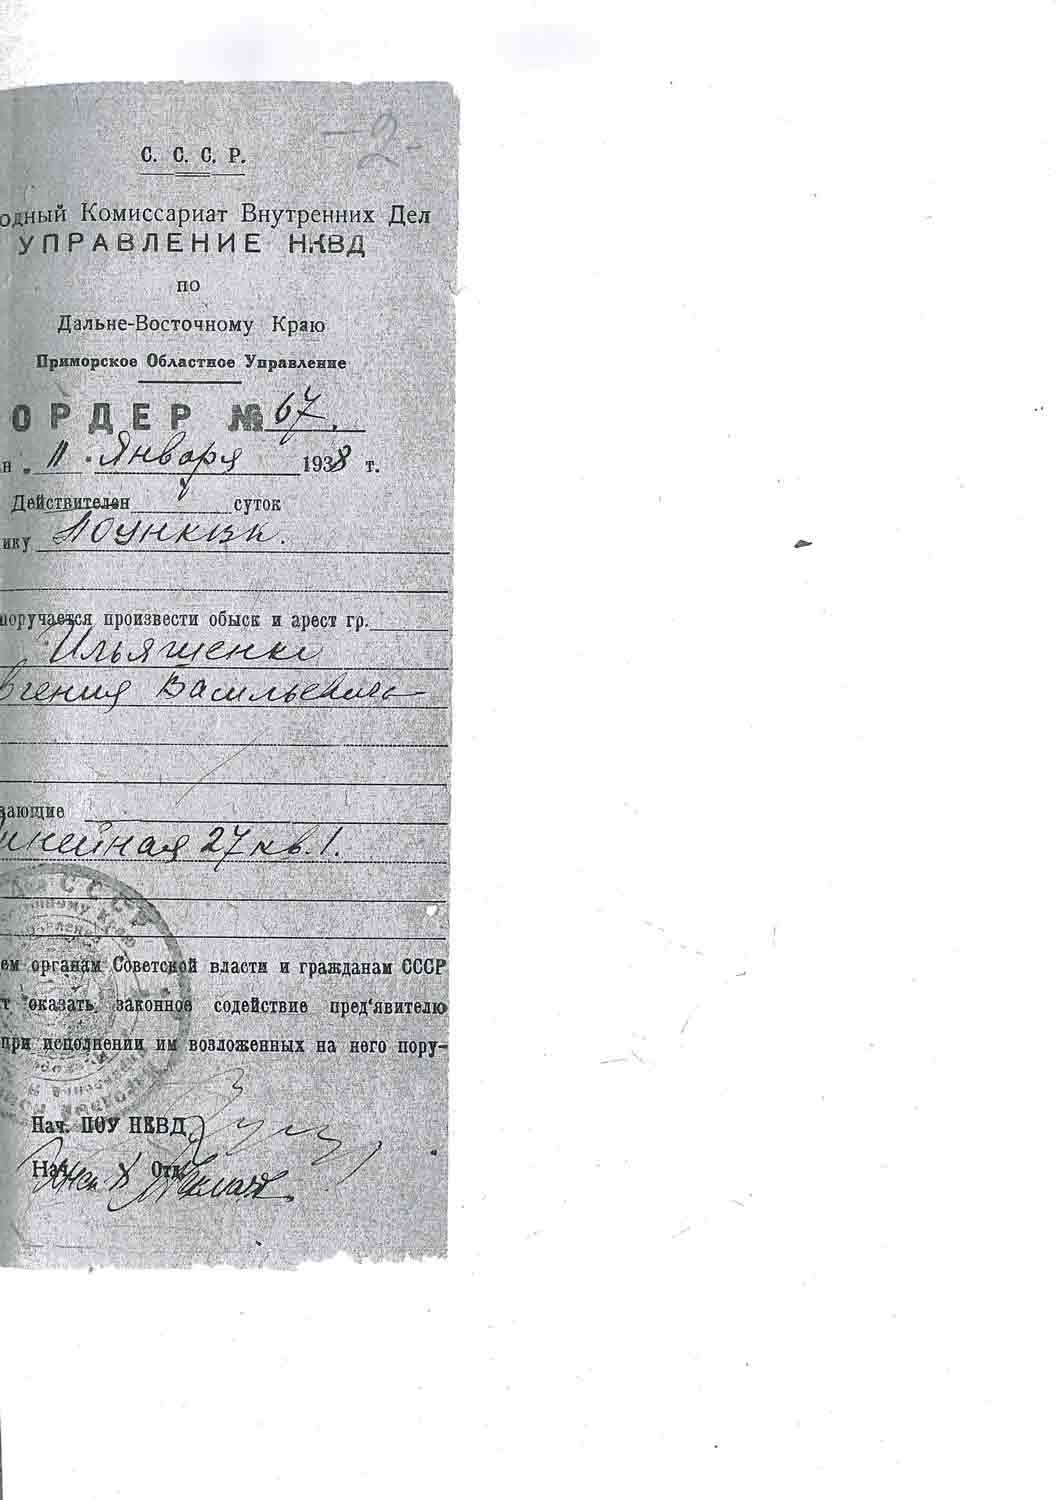 -2-
С. С. С. Р.
одный Комиссариат Внутренних Дел
УПРАВЛЕНИЕ НКВД
по
Дальне-Восточному Краю
Приморское Областное Управление
ОРДЕР № 67.
н „ 11 " Января 1938 г.
Действителен суток
ику ПОУНКВД.
поручается произвести обыск и арест гр.
Ильяшенко
вгения Васильевич
вающие
инейная 27 кв. 1.
ем органам Советской власти и гражданам СССР
т оказать законное содействие пред'явителю
при исполнении им возложенных на него пору-
Нач. ПОУ НКВД
Нач. Отд.